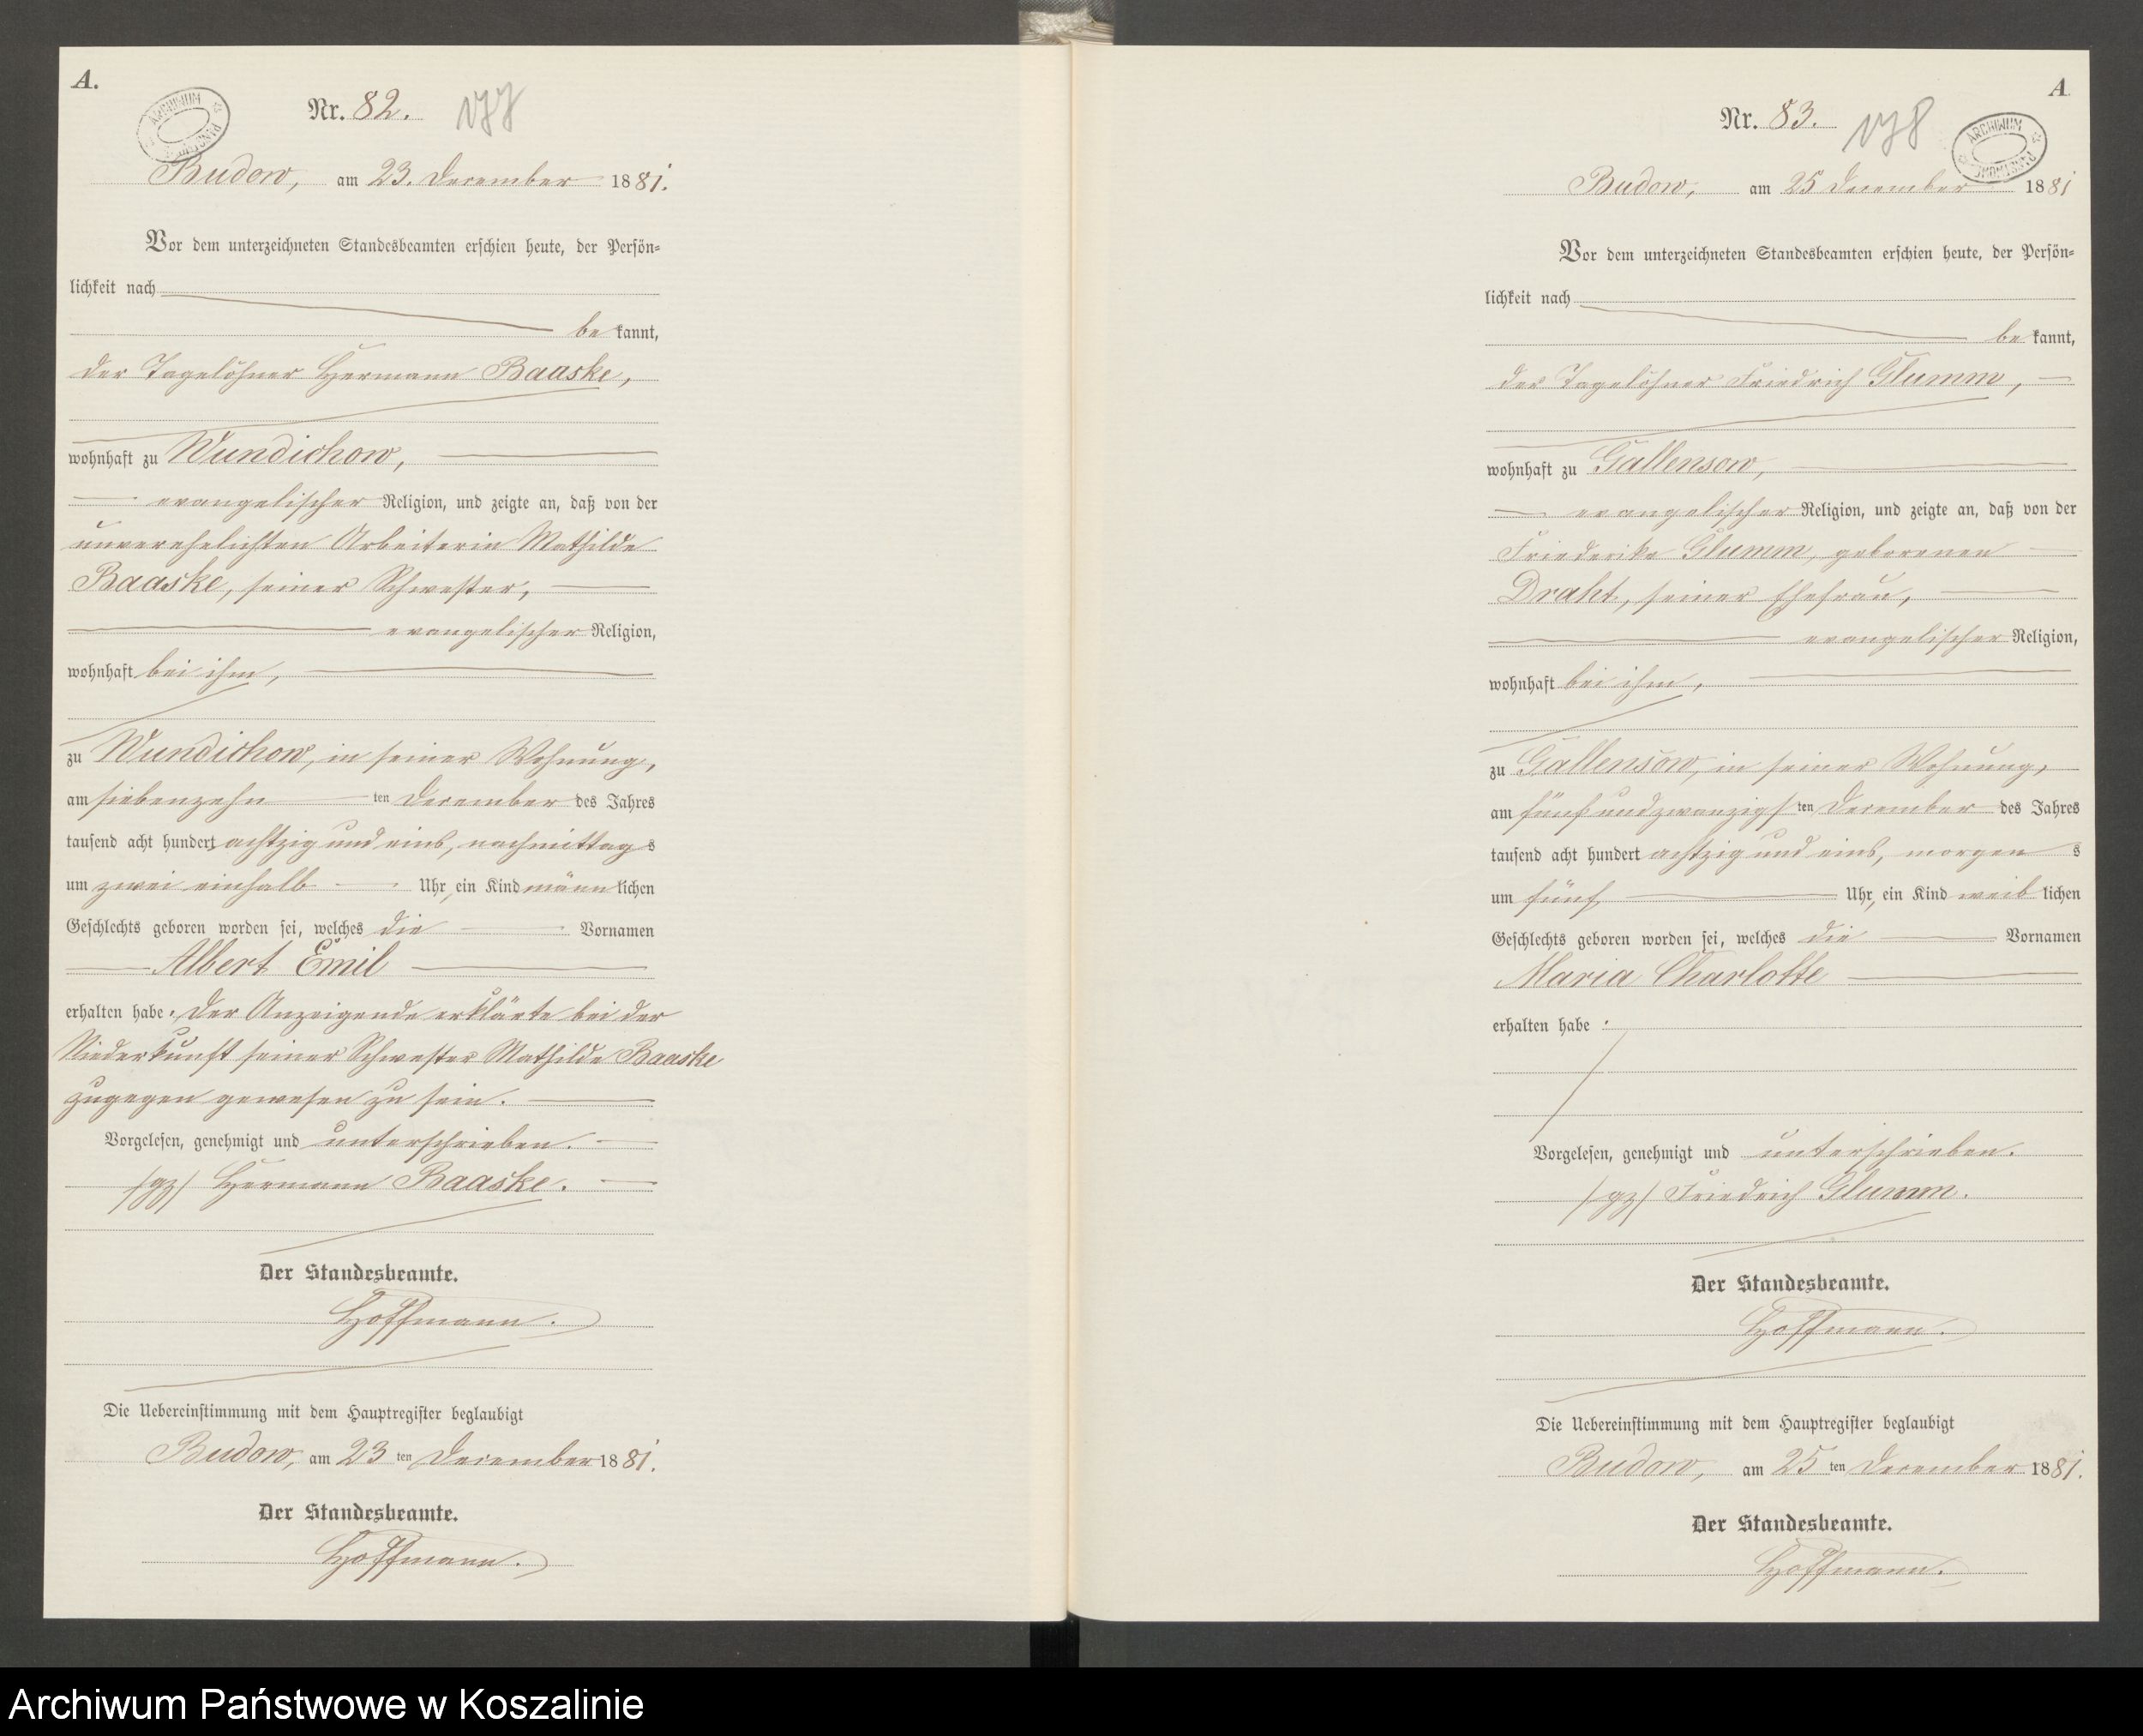 A.
ARCHIWUM PAŃSTWOWE
Nr. 82. 177
Budow, am 23. December 1881.
Vor dem unterzeichneten Standesbeamten erschien heute, der Persön-
lichkeit nach
be kannt,
der Tagelöhner Hermann Baaske,
wohnhaft zu Wundichow,
evangelischer Religion, und zeigte an, daß von der
unverehelichten Arbeiterin Mathilde
Baaske, seiner Schwester,
evangelischer Religion,
wohnhaft bei ihm,
zu Wundichow, in seiner Wohnung,
am siebenzehn ten December des Jahres
tausend acht hundert achtzig und eins, nachmittags
um zwei einhalb Uhr, ein Kind männlichen
Geschlechts geboren worden sei, welches die Vornamen
Albert Emil
erhalten habe. Der Anzeigende erklärte bei der
Niederkunft seiner Schwester Mathilde Baaske
zugegen gewesen zu sein.
Vorgelesen, genehmigt und unterschrieben.
/gz/ Hermann Baaske.
Der Standesbeamte.
Hoffmann.
Die Uebereinstimmung mit dem Hauptregister beglaubigt
Budow, am 23 ten December 1881.
Der Standesbeamte.
Hoffmann.
A
Nr. 83. 178
ARCHIWUM PAŃSTWOWE
Budow, am 25 December 1881
Vor dem unterzeichneten Standesbeamten erschien heute, der Persön-
lichkeit nach
be kannt,
der Tagelöhner Friedrich Glumm,
wohnhaft zu Gallensow,
evangelischer Religion, und zeigte an, daß von der
Friederike Glumm, geborenen
Draht, seiner Ehefrau,
evangelischer Religion,
wohnhaft bei ihm,
zu Gallensow, in seiner Wohnung,
am fünfundzwanzigs ten December des Jahres
tausend acht hundert achtzig und eins, morgens
um fünf Uhr, ein Kind weiblichen
Geschlechts geboren worden sei, welches die Vornamen
Maria Charlotte
erhalten habe.
Vorgelesen, genehmigt und unterschrieben.
/gz/ Friedrich Glumm.
Der Standesbeamte.
Hoffmann.
Die Uebereinstimmung mit dem Hauptregister beglaubigt
Budow, am 25 ten December 1881.
Der Standesbeamte.
Hoffmann.
Archiwum Państwowe w Koszalinie